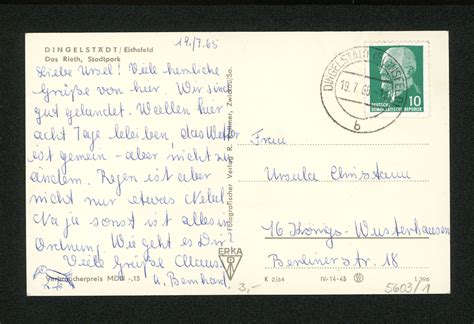 19./7.65
DINGELSTÄDT/Eichsfeld
Das Rieth, Stadtpark
Liebe Ursel! Viele herzliche
Grüße von hier. Wir sind
gut gelandet. Wollen hier
acht Tage bleiben, das Wetter
ist gemein - aber nicht zu
ändern. Regen ist aber
nicht nur etwas Nebel.
Na ja sonst ist alles in
Ordnung. Wie geht es Dir?
Viele Grüße Claus
u. Bernhard.
Verbraucherpreis MDN -,15
Fotografischer Verlag R. Zwickau/Sa.
ERKA
3,-
K 2/64
IV-14-45
DINGELSTÄDT (EICHSFELD)
19.7.65
b
DEUTSCHE
DEMOKRATISCHE REPUBLIK
10
Frau
Ursula Christann
16 Königs-Wusterhausen
Berlinerstr. 18
5603/1